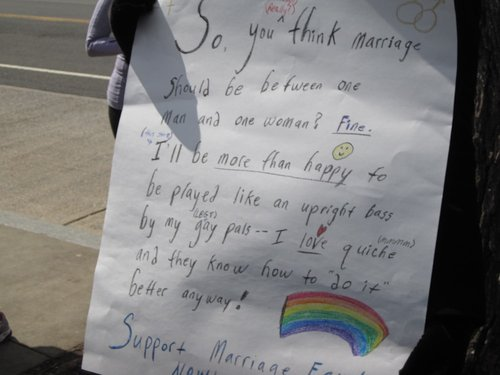 (Really?)
So, you ^ think marriage
should be between one
man and one woman? Fine.
I'll be more than happy to
be played like an upright bass
(LBGT)
by my gay pals -- I love quiche (mmmm)
and they know how to "do it"
better anyway!
Support Marriage
Now